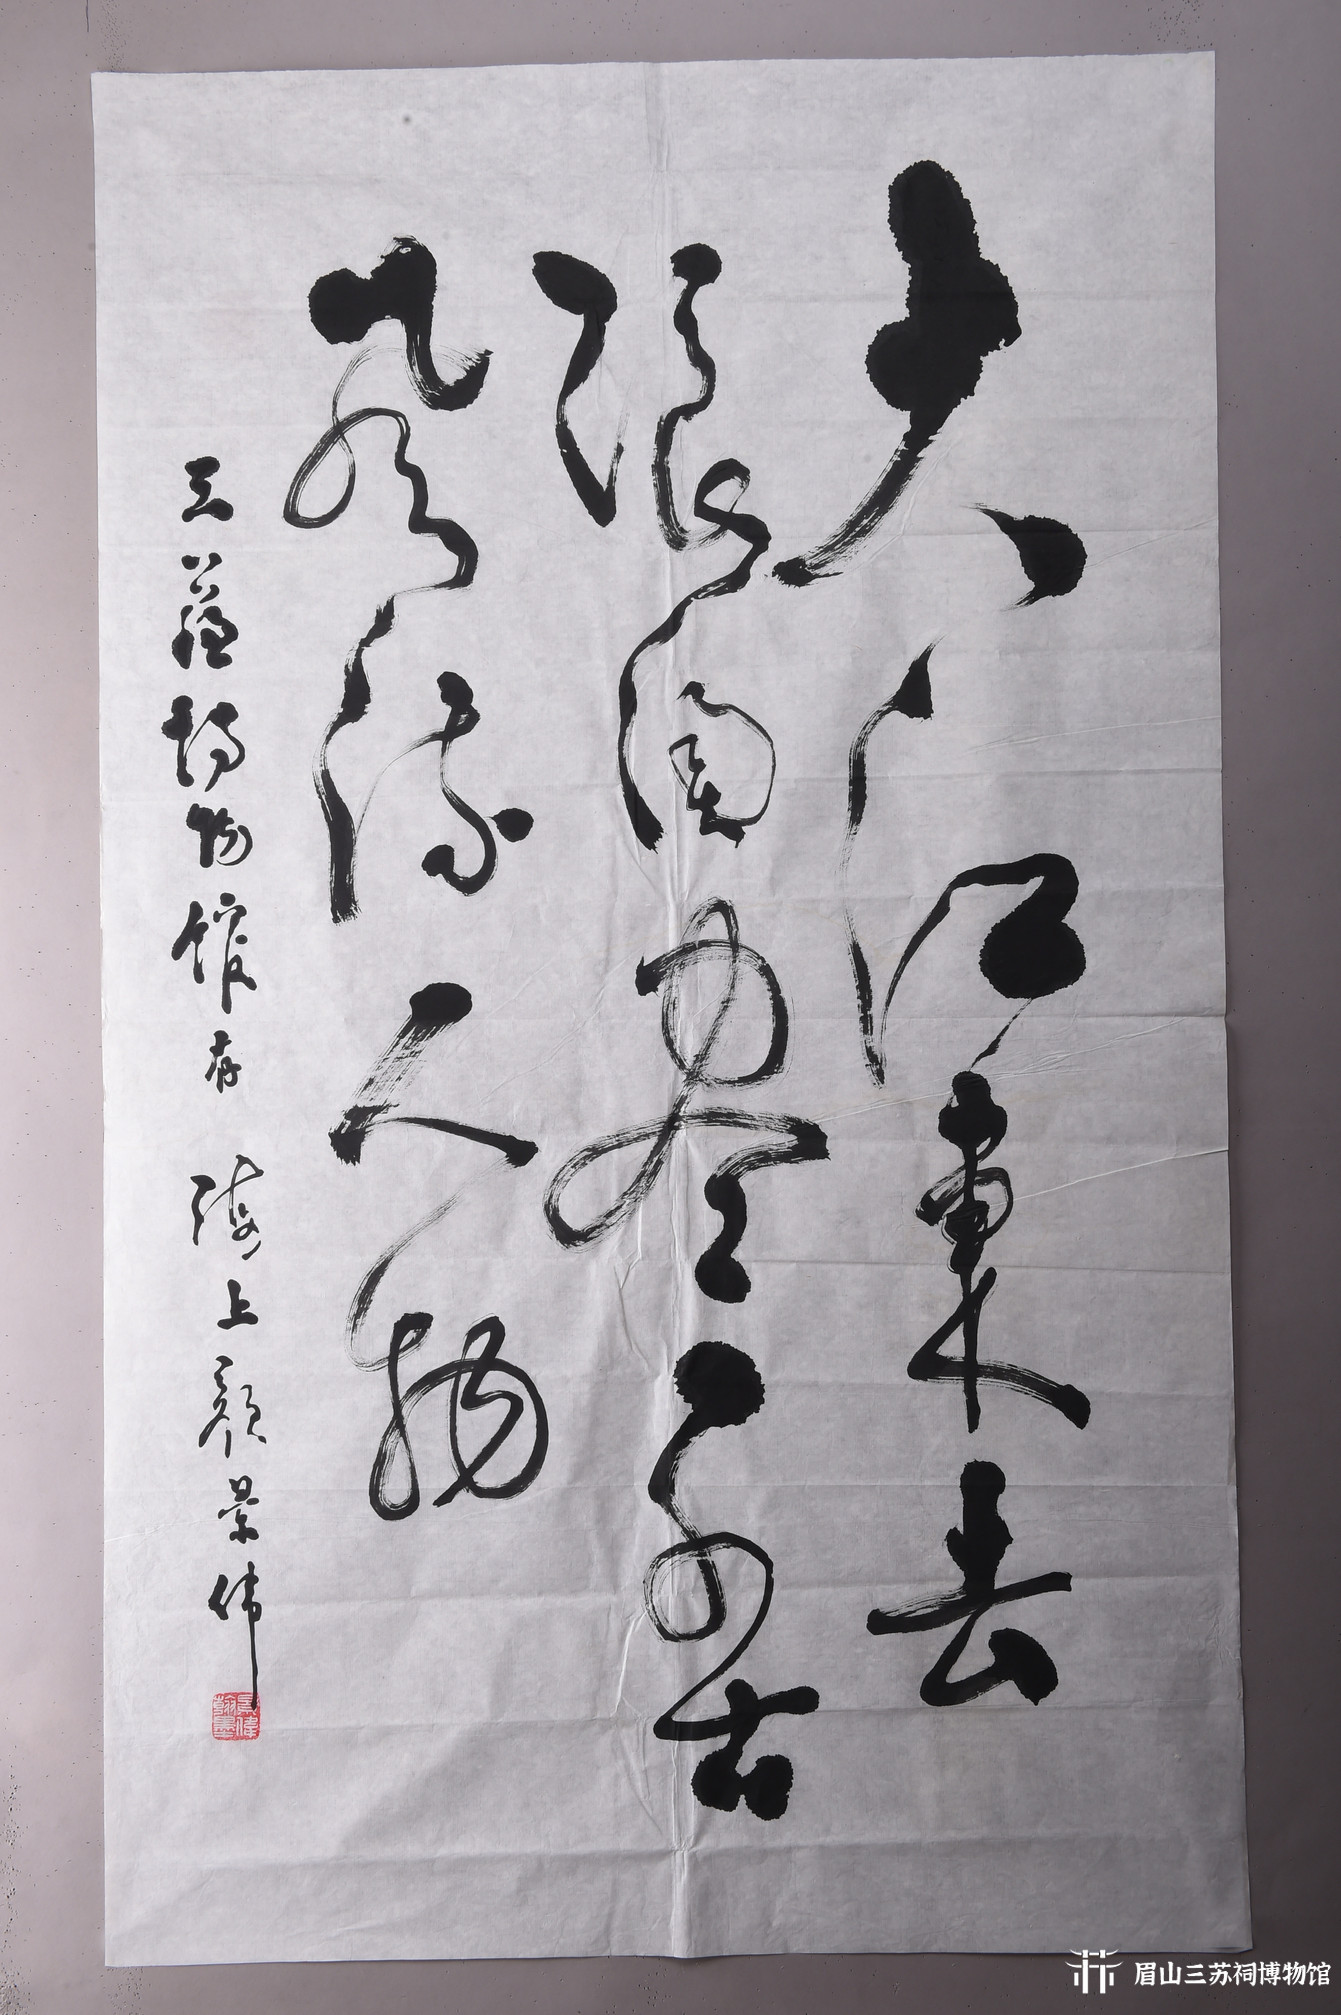 大江東去
浪淘尽千古
風流人物
三蘇博物館存 海上顏景伟
眉山三苏祠博物馆